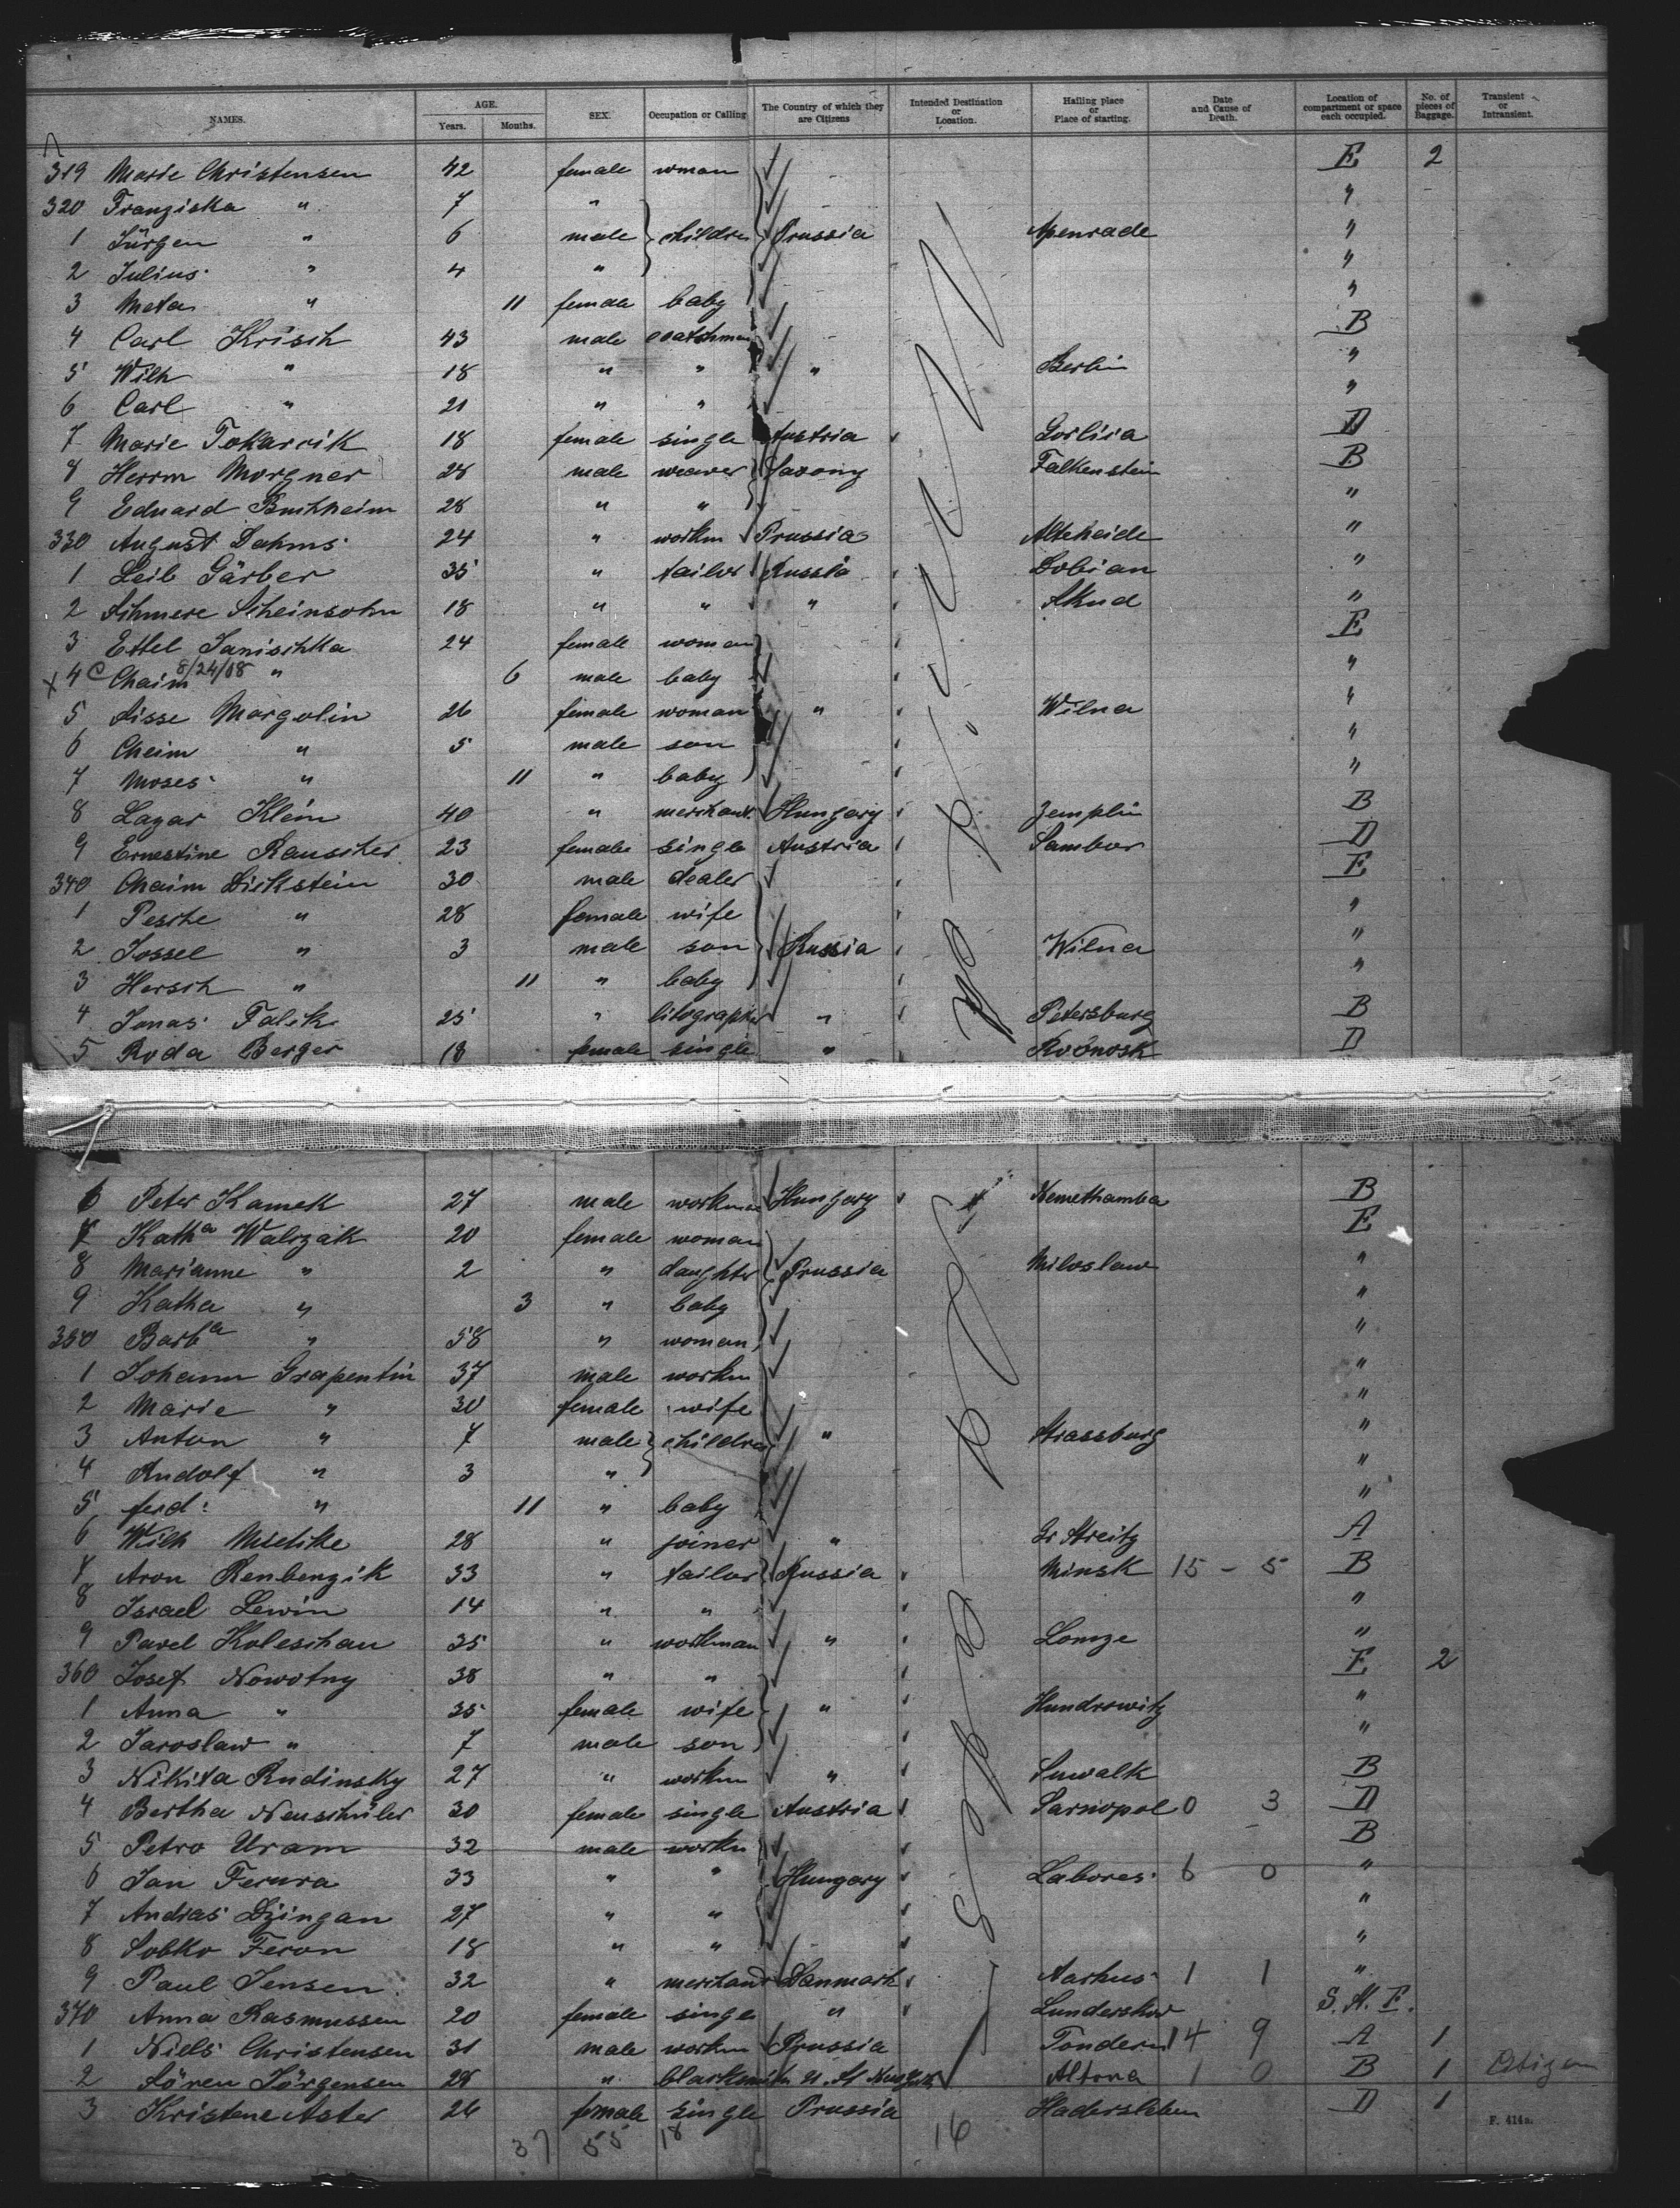 NAMES. AGE. Years. Months. SEX. Occupation or Calling The Country of which they are Citizens Intended Destination or Location. Hailing place or Place of starting. Date and Cause of Death. Location of compartment or space each occupied. No. of pieces of Baggage. Transient or Intransient.
319 Marie Christensen 42 female woman E 2
320 Franziska " 7 " "
1 Jürgen " 6 male children Prussia Apenrade "
2 Julius " 4 " "
3 Meta " 11 female baby "
4 Carl Krisch 43 male B
5 Wilh " 18 " " " Berlin "
6 Carl " 21 " " "
7 Marie Tokarcik 18 female single Austria Gorlica D
8 Herrm Morgner 28 male weaver Saxony Falkenstein B
9 Eduard 28 " " "
330 August Dahms 24 " workm Prussia Alteheide "
1 Leib Gärber 35 " tailor Russia Dobian "
2 Scheinsohn 18 " " " Skud "
3 Ettel Janischka 24 female woman E
4 C Chaim 8/24/08 " 6 male baby "
5 Lisse Margolin 26 female woman " Wilna "
6 Cheim " 5 male son "
7 Moses " 11 " baby "
8 Lazar Klein 40 " merchant Hungary Zemplin B
9 Ernestine Rauscher 23 female single Austria Sambor D
340 Chaim Dickstein 30 male dealer E
1 Pesche " 28 female wife "
2 Jossel " 3 male son Russia Wilna "
3 Hersch " 11 " baby "
4 Jonas Falik 25 " litographer " Petersburg B
5 Roda Berger 18 female single " D
6 Peter Kamek 27 male workman Hungary B
7 Katha Walczak 20 female woman E
8 Marianne " 2 " daughter Prussia Miloslaw "
9 Katha " 3 " baby "
350 Barba " 58 " woman "
1 Johann Grapentin 37 male workm "
2 Marie " 30 female wife "
3 Anton " 7 male children " Strassburg "
4 Rudolf " 3 " "
5 ferd: " 11 " baby "
6 Wilh 28 " joiner " Gr Streitz A
7 Aron Renbenzik 33 " tailor Russia Minsk 15 - 5 B
8 Israel Lewin 14 " " "
9 Pavel Koleschau 35 " workman " Lomze "
360 Josef Nowotny 38 " " E 2
1 Anna " 35 female wife " Hundrowitz "
2 Jaroslaw " 7 male son "
3 Nikita Rudinsky 27 " workm " Suwalk B
4 Bertha Neuschüler 30 female single Austria Tarnopol 0 3 D
5 Petro Uram 32 male workm B
6 Jan Ferura 33 " " Hungary Labores 6 0 "
7 Andras Dzingan 27 " " "
8 Sobko Feron 18 " " "
9 Paul Jensen 32 " merchand Danmark Aarhus 1 1 "
370 Anna Rasmussen 20 female single " Lunderskov S. H. E.
1 Niels Christensen 31 male workm Prussia Tondern 14 9 A 1
2 Sören Jörgensen 28 " blacksmith U. St Altona 1 0 B 1 Citizen
3 Kristene Aster 26 female single Prussia Hadersleben D 1
37 55 18 16
F. 414a.